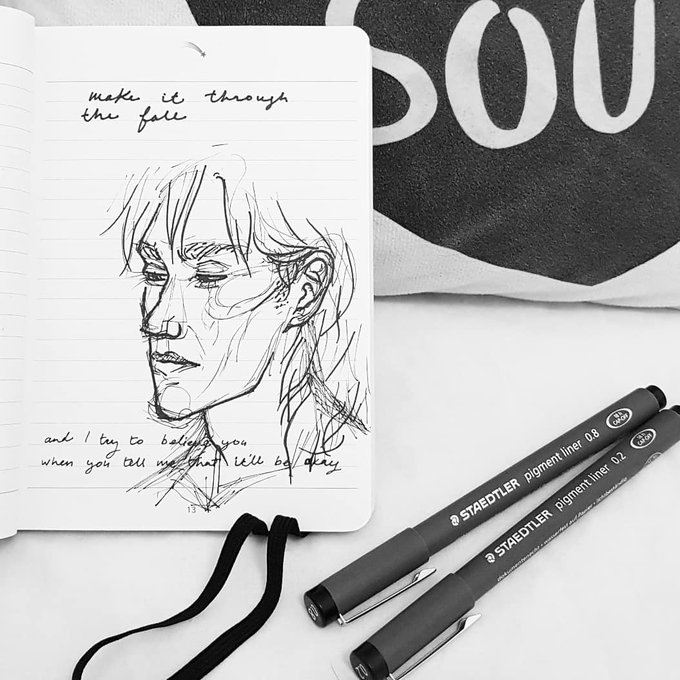 SOU
make it through
the fall
and I try to believe you
when you tell me that it'll be okay
13
STAEDTLER pigment liner 0.8
STAEDTLER pigment liner 0.2